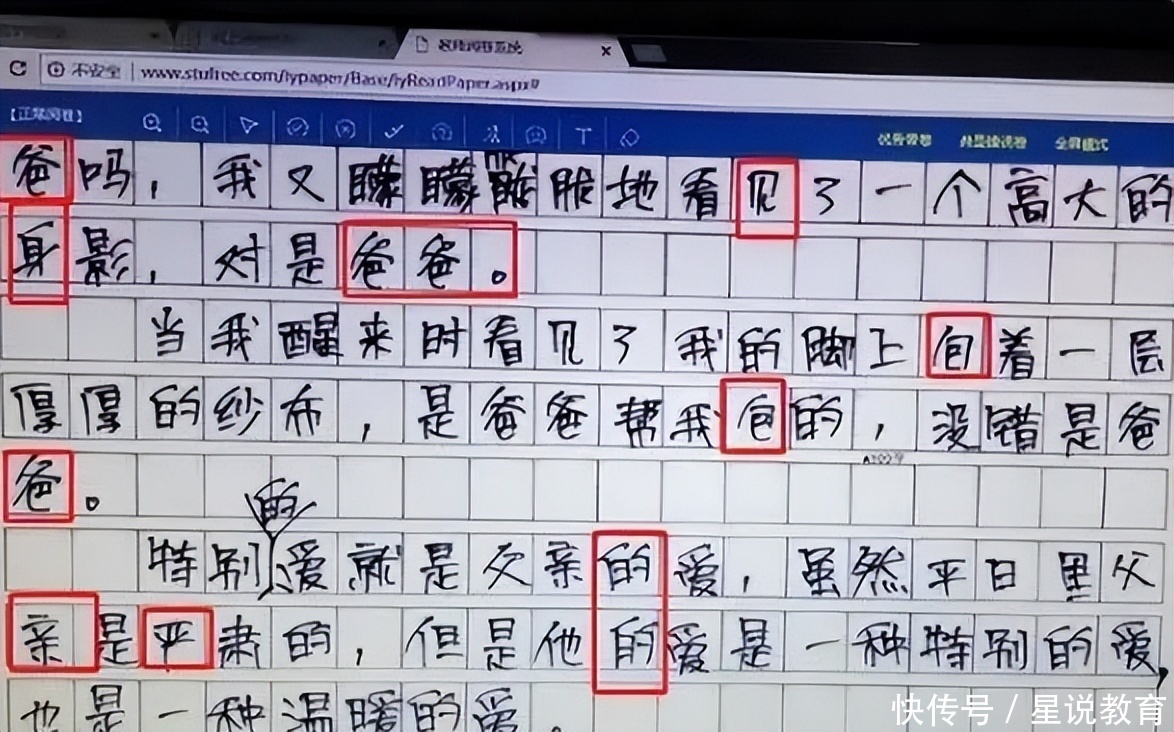 不安全 www.stufree.com/lypaper/Base/lyReadPaper.aspx#
【正常阅卷】 优秀答卷 典型错误卷 全屏模式
爸吗，我又朦朦胧胧地看见了一个高大的
身影，对是爸爸。
当我醒来时看见了我的脚上包着一层
厚厚的纱布，是爸爸帮我包的，没错是爸
爸。
特别的爱就是父亲的爱，虽然平日里父
亲是严肃的，但是他的爱是一种特别的爱，
也是一种温暖的爱。
快传号 / 星说教育